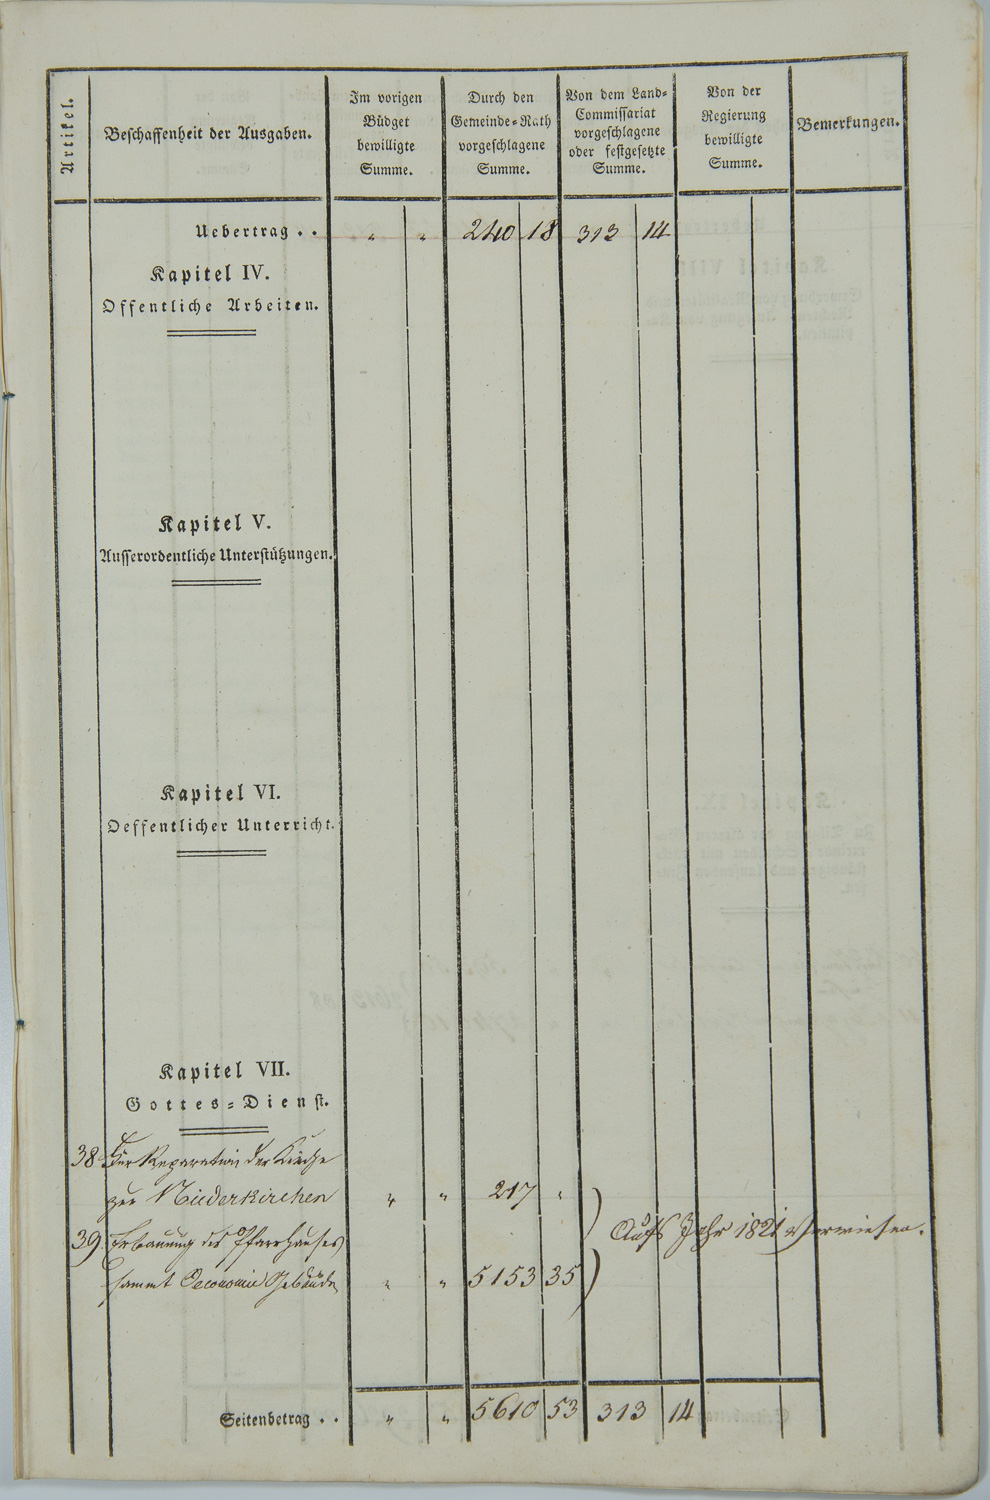 Artikel.
Beschaffenheit der Ausgaben.
Im vorigen
Büdget
bewilligte
Summe.
Durch den
Gemeinde=Rath
vorgeschlagene
Summe.
Von dem Land=
Commissariat
vorgeschlagene
oder festgesetzte
Summe.
Von der
Regierung
bewilligte
Summe.
Bemerkungen.
Uebertrag . . " " 240 18 313 14
Kapitel IV.
Offentliche Arbeiten.
Kapitel V.
Ausserordentliche Unterstützungen.
Kapitel VI.
Oeffentlicher Unterricht.
Kapitel VII.
Gottes=Dienst.
38 Zur Reparation der Kirche
zu Niederkirchen " " 217 "
Aufs Jahr 1821 verwiesen.
39. Erbauung des Pfarrhauses
sammt Oeconomie Gebäude " " 5153 35
Seitenbetrag . . " " 5610 53 313 14